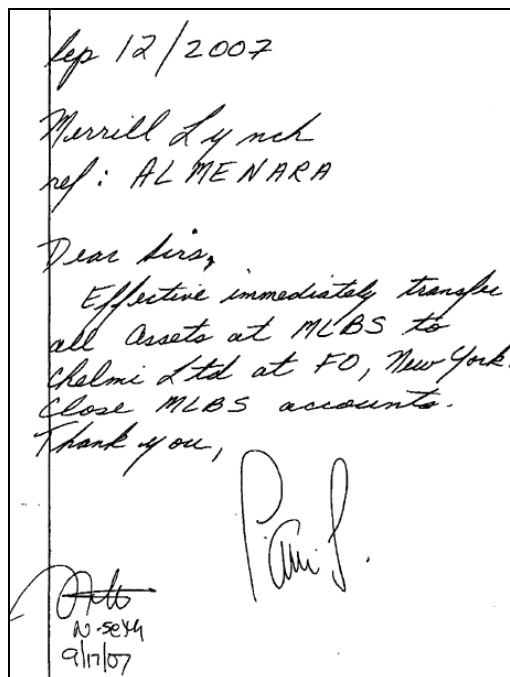 Sep 12/2007
Merrill Lynch
ref: ALMENARA
Dear Sirs,
Effective immediately transfer
all Assets at MLBS to
Chelmi Ltd at FO, New York.
Close MLBS accounts.
Thank you,
N-Seth
9/17/07